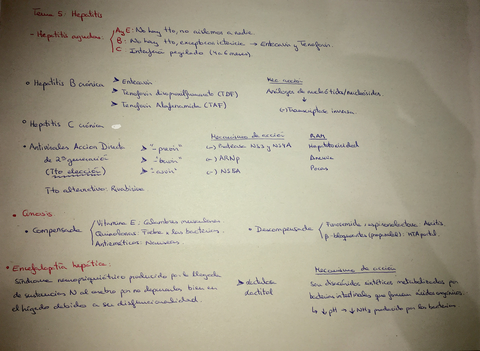 Tema 5: Hepatitis
- Hepatitis agudas:
A y E: No hay tto, no aislamos a nadie.
B: No hay tto, excepto → Entecavir y Tenofovir.
C: Interferón pegilado (4 a 6 meses)
Hepatitis B crónica
➤ Entecavir
➤ Tenofovir (TDF)
➤ Tenofovir Alafenamida (TAF)
Análogos de nucleótidos/nucleósidos
↓
(-) Transcriptasa inversa
Hepatitis C crónica
Antivirales Acción Directa de 2ª generación (Tto elección)
➤ "-previr"
➤ "-buvir"
➤ "-asvir"
Mecanismo de acción
(-) Proteasa NS3 y NS4A
(-) ARNp
(-) NS5A
RAM
Hepatotoxicidad
Anemia
Pocas
Tto alternativo: Ribavirina
Cirrosis
• Compensada
Vitamina E: Calambres musculares
Quinolonas: Frena a las bacterias.
Antieméticos: Náuseas.
• Descompensada
Furosemida, espironolactona: Ascitis.
β-bloqueantes (propranolol): HTA portal.
Encefalopatía hepática:
Síndrome neuropsiquiátrico producido por la llegada
de sustancias N al cerebro por no depurarlas bien en
el hígado debido a su disfuncionalidad.
➤ lactulosa
lactitol
Mecanismo de acción
Son disacáridos sintéticos metabolizados por
bacterias intestinales que forman ácidos orgánicos.
↳ ↓pH → ↓NH₃ producido por las bacterias